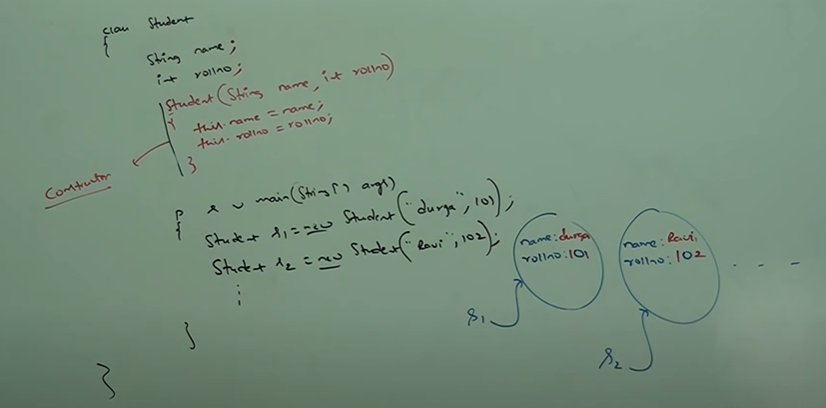 class Student
{
String name;
int rollno;
Student(String name, int rollno)
{
this.name = name;
this.rollno = rollno;
}
Constructor
P s v main(String[] args)
{
Student s1 = new Student("durga", 101);
Student s2 = new Student("Ravi", 102);
}
}
name: durga
rollno: 101
s1
name: Ravi
rollno: 102
s2